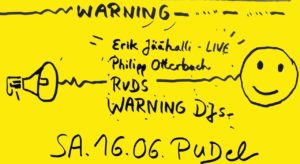 WARNING
Erik Jäähalli - LIVE
Philipp Otterbach
RVDS
WARNING DJs.
SA. 16.06. PuDel